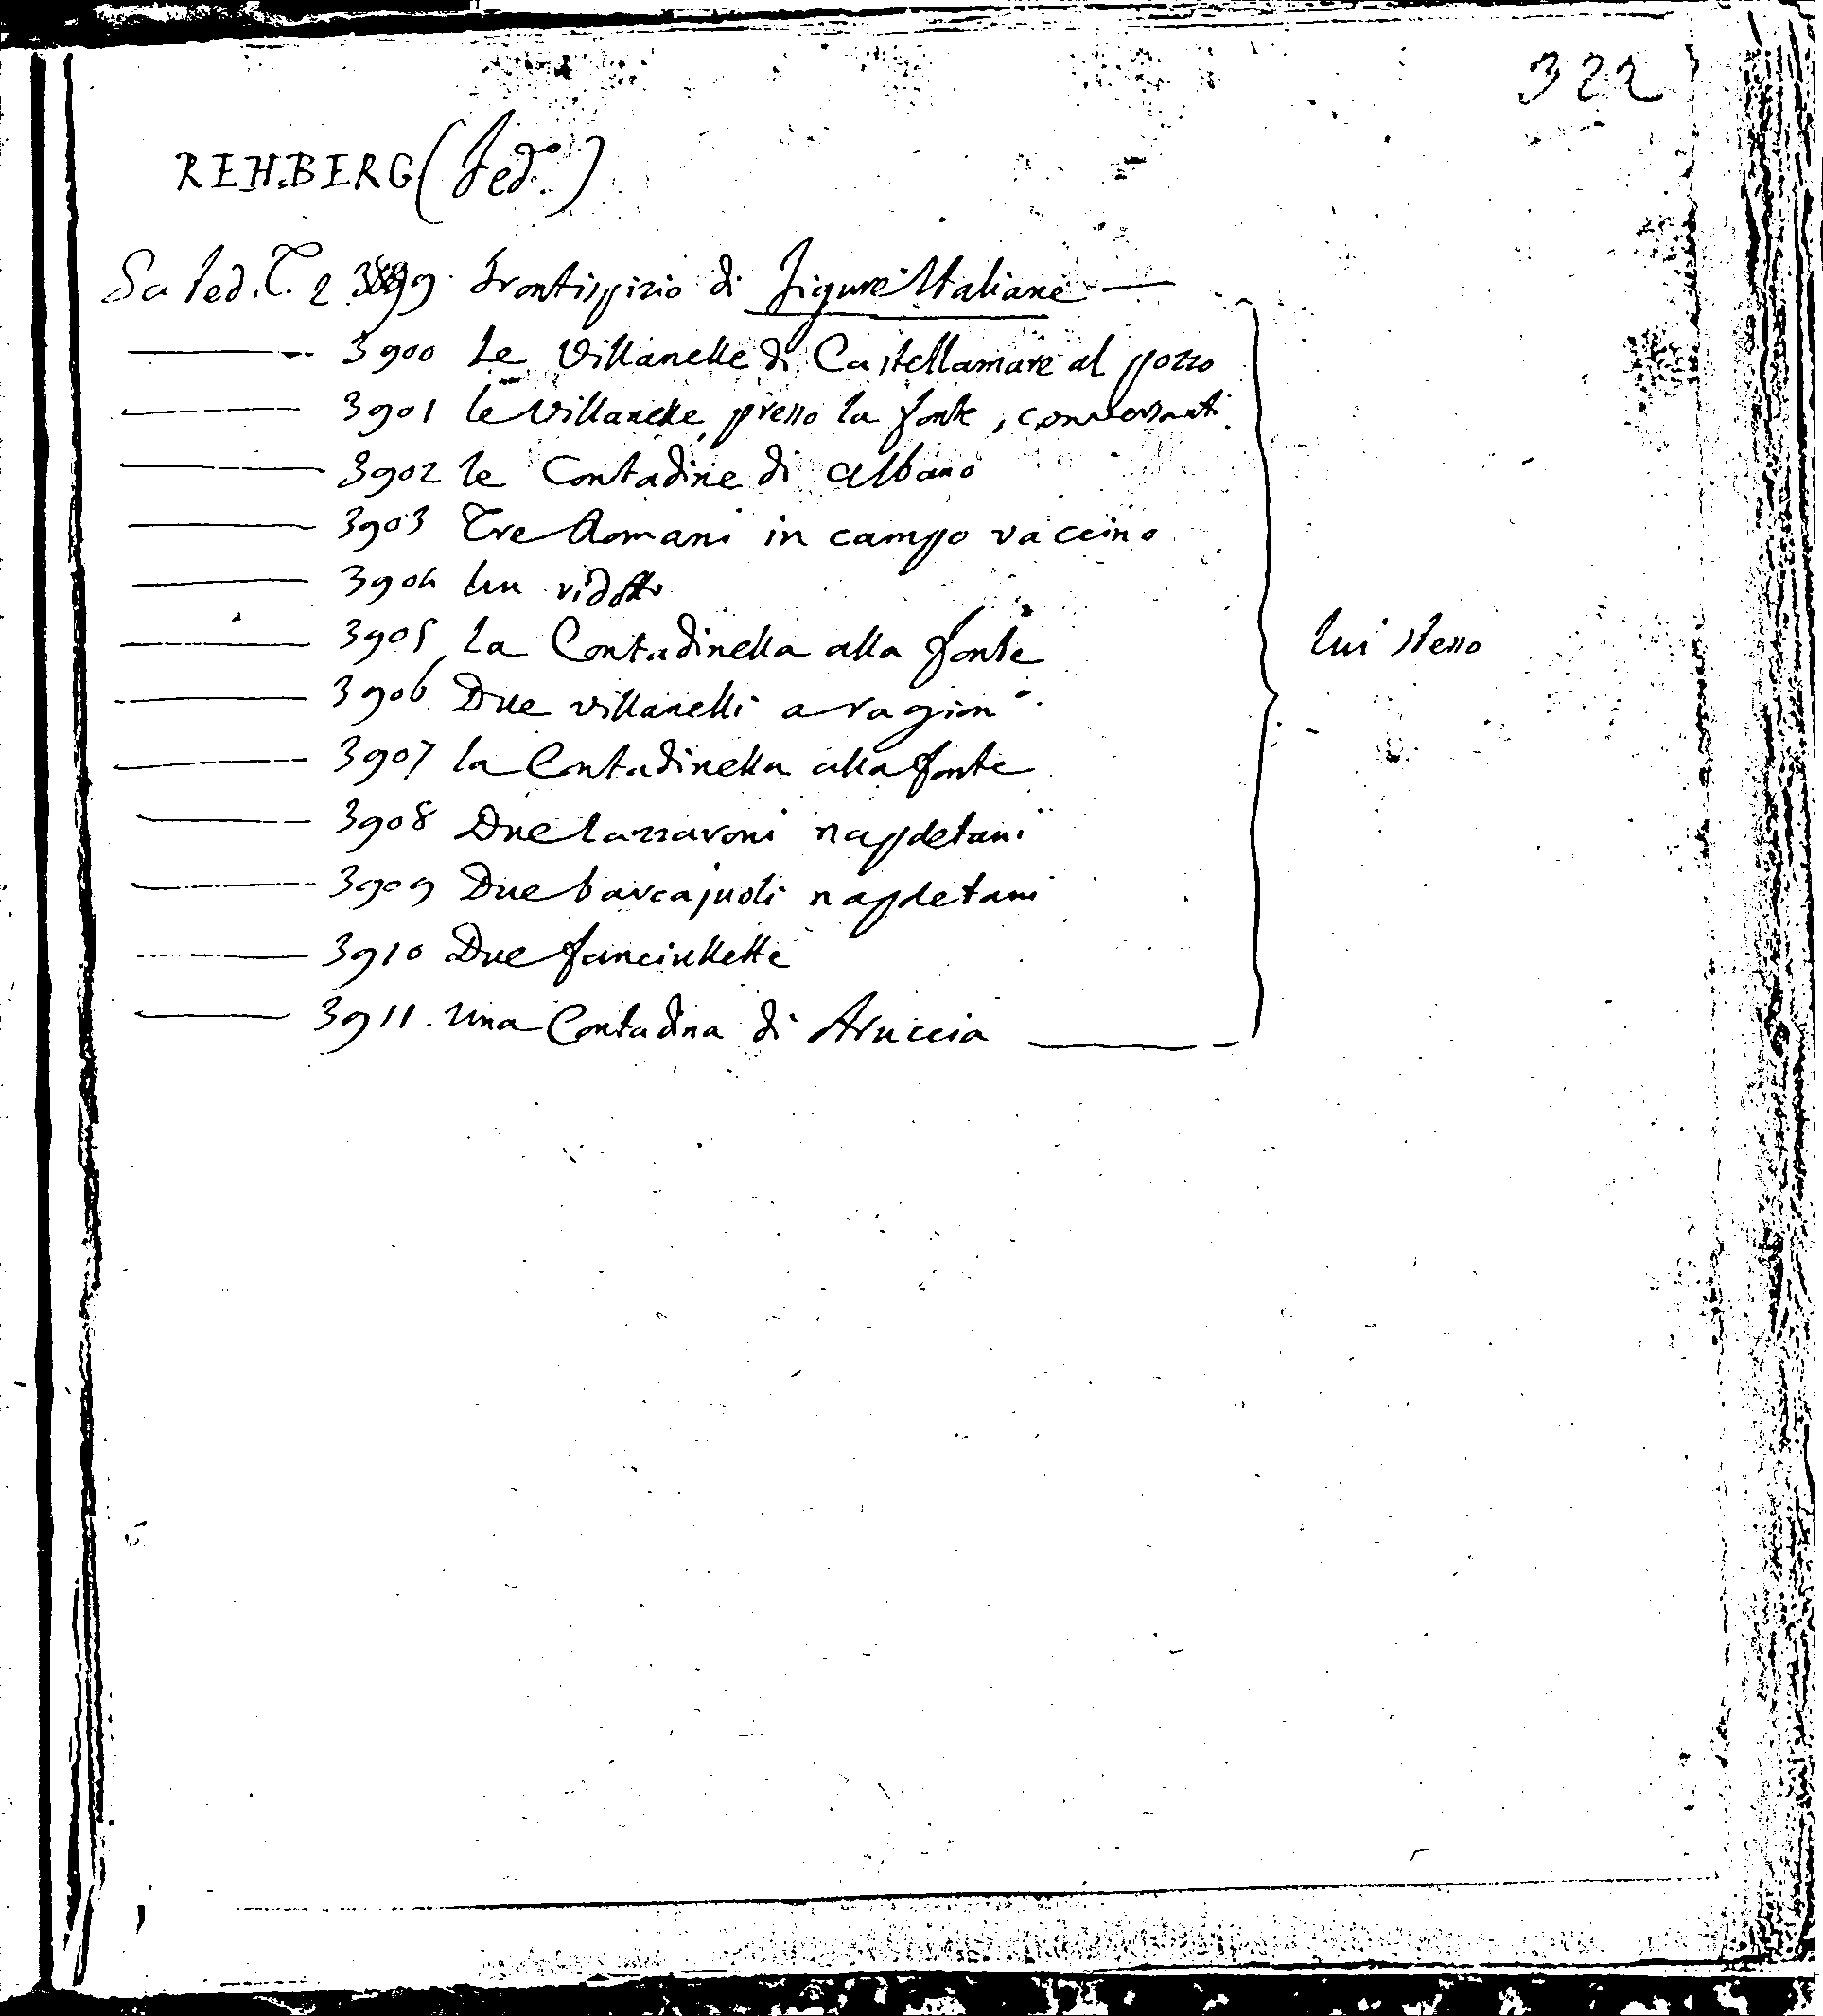 322
REHBERG (Fed.º)
Sc. Ted. T. 2 3899 Frontispizio di Figure Italiane —
3900 Le Villanelle di Castellamare al pozzo
3901 le Villanelle presso la fonte, conversanti
3902 le Contadine di Albano
3903 Tre Romani in campo vaccino
3904 Un ridotto
3905 La Contadinella alla fonte
lui stesso
3906 Due villanelli
3907 la Contadinella alla fonte
3908 Due lazzaroni napoletani
3909 Due barcajuoli napoletani
3910 Due fanciullette
3911. Una Contadina di Aruccia